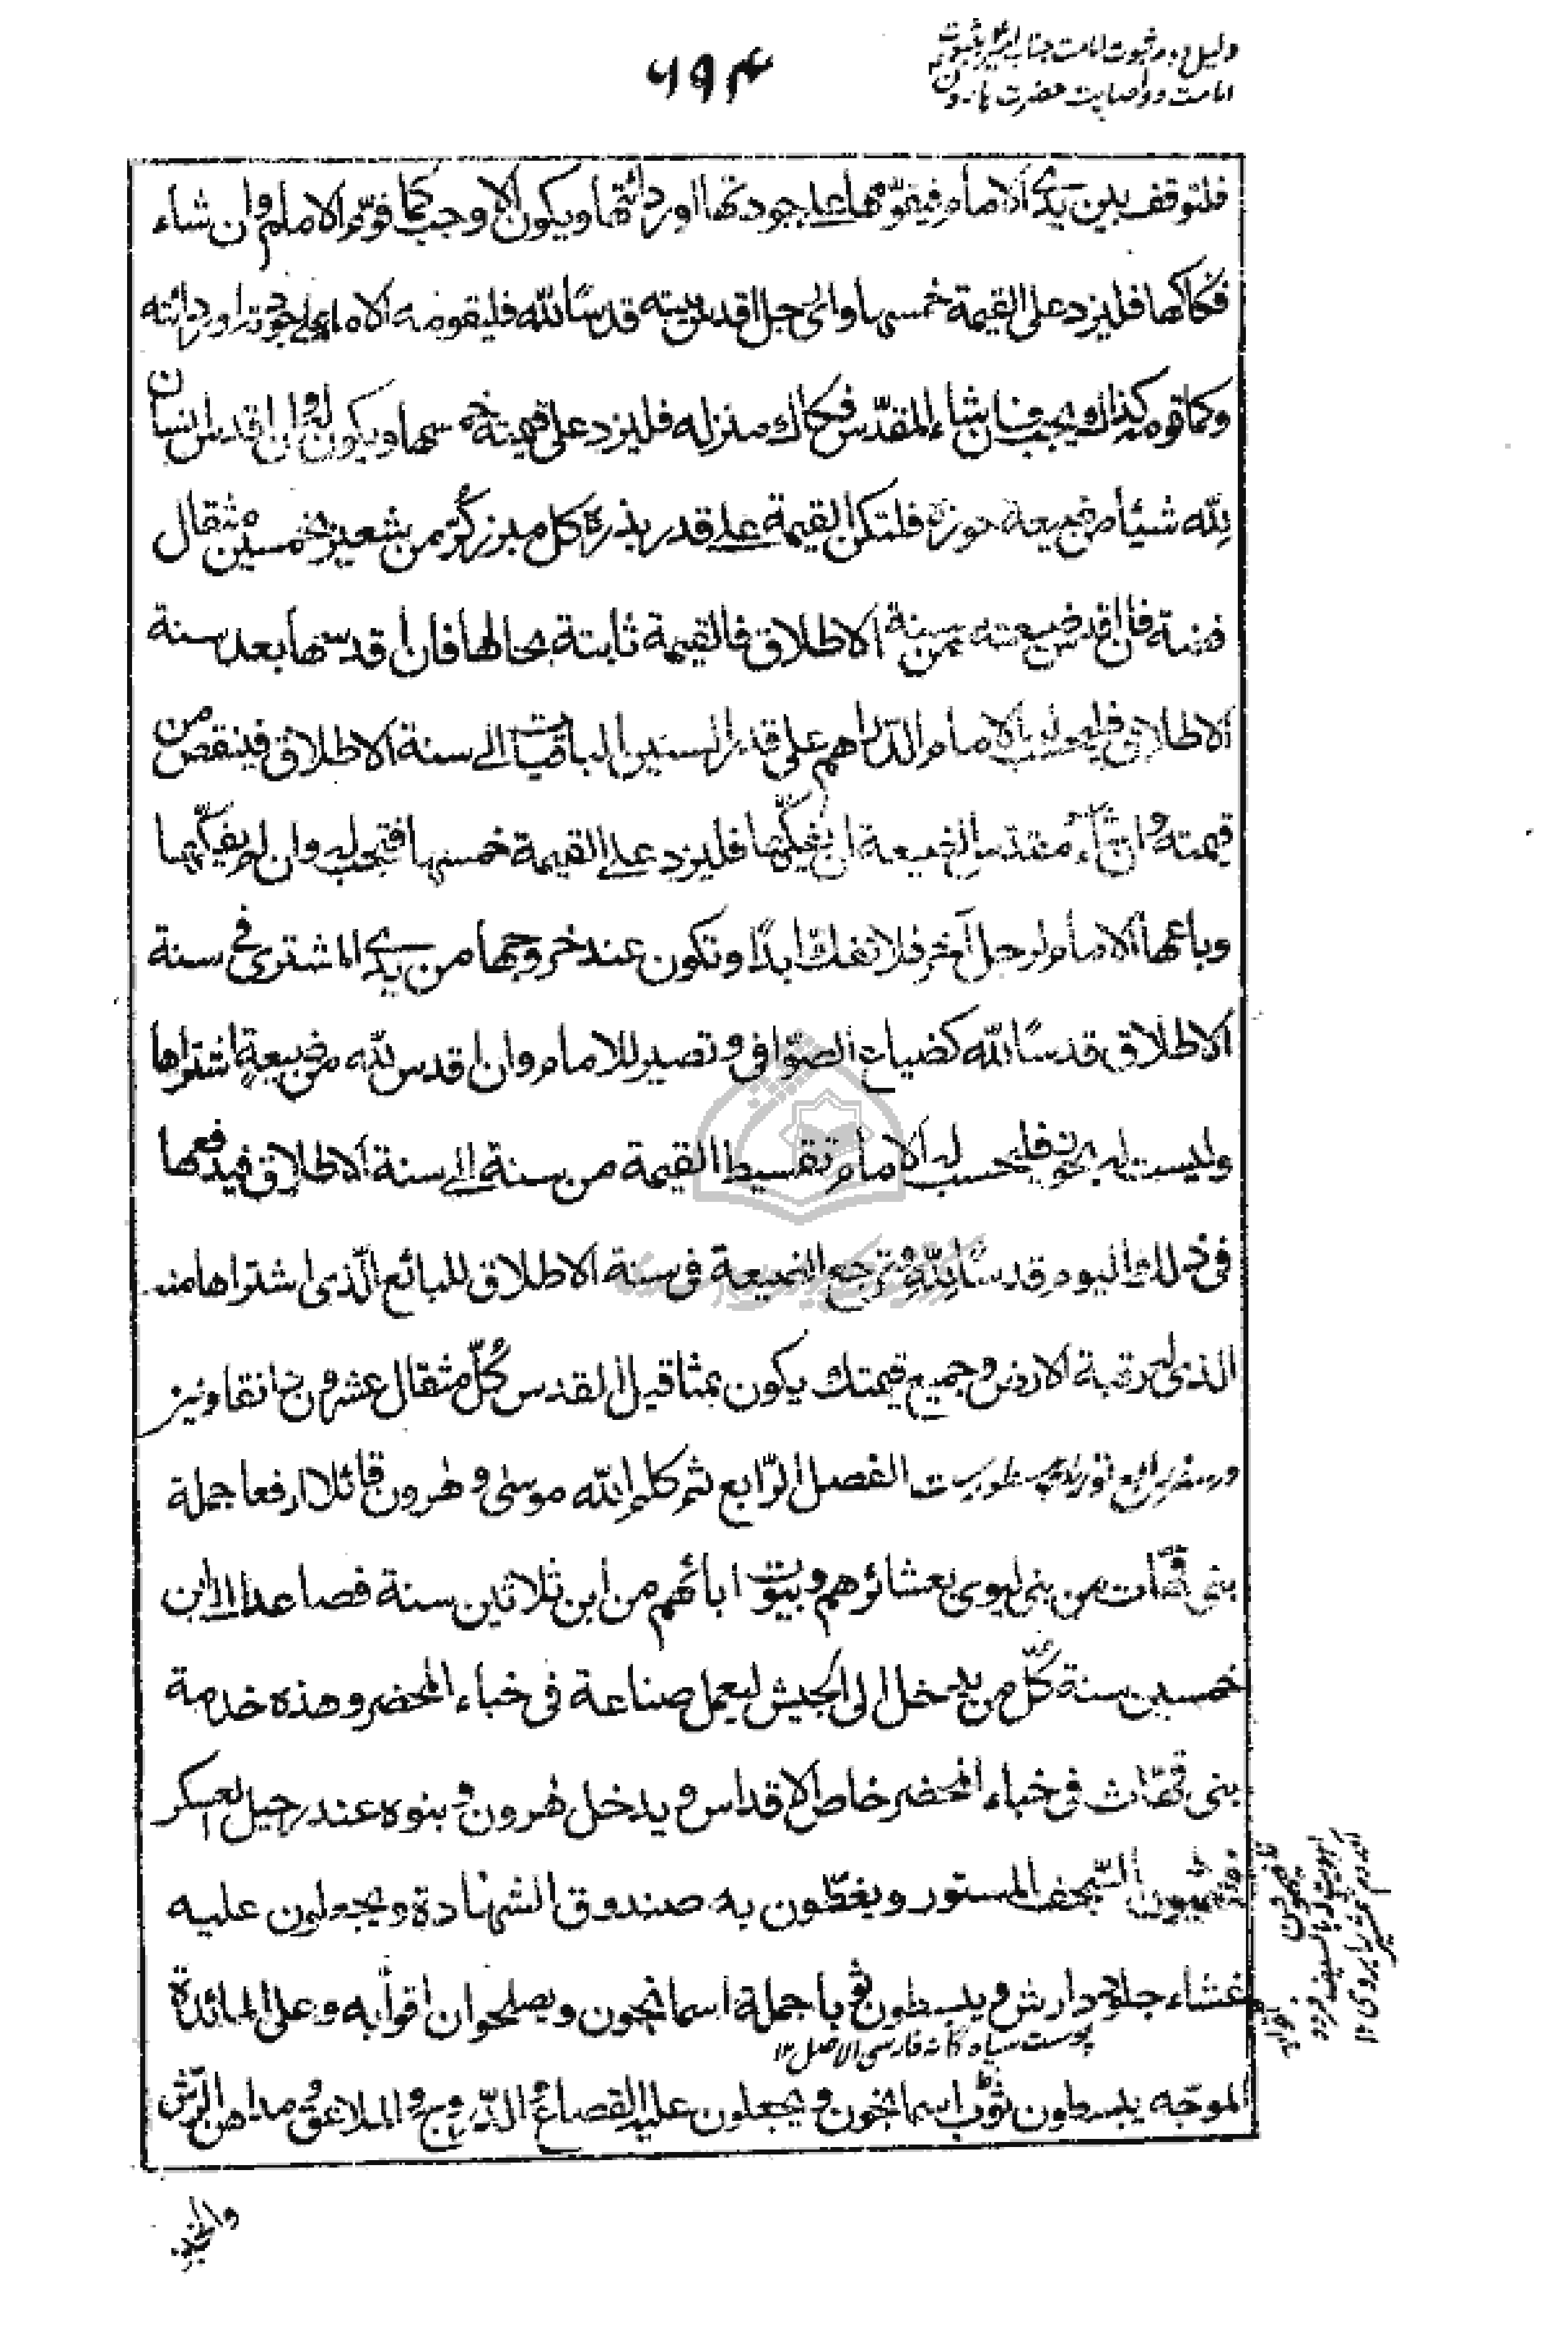 دلیل دہم ثبوت امامت جناب امیر بثبوت
۶۹۴
امامت و وصایت حضرت ہارون
فلتوقف بين يدى الامام فيقوّمها على جودتها او ردائتها ويكون الاوجب كما قوّم الامام وان شاء
فكاكها فليزد على القيمة خمسها واىّ رجل اقدس بيته قدسًا لله فليقومه الامام على جودته او ردائته
وكما قومه كذلك يجب فان شاء المقدّس فكاك منزله فليزد على قيمته خمسها ويكون له وان اقدس انسان
لله شيئا من ضيعة حوزه فلتكن القيمة على قدر بذره كل مبزر كرّ من شعير بخمسين مثقال
فضة فان اقدس ضيعته من سنة الاطلاق فالقيمة ثابتة بحالها فان اقدسها بعد سنة
الاطلاق فليحسب له الامام الدّراهم على قدر السنين الباقيات الى سنة الاطلاق فينقص من
قيمته وان شاء مقدّس الضيعة ان يفكّها فليزد على القيمة خمسها فتجب له وان لم يفكّها
وباعها الامام لرجل آخر فلا تفك ابدًا وتكون عند خروجها من يدى المشترى فى سنة
الاطلاق قدسًا لله كضياع الصّوافى وتصير للامام وان اقدس لله من ضيعة اشتراها
وليست له بحوز فليحسب له الامام تقسيط القيمة من سنة الى سنة الاطلاق فيدفعها
فى ذلك اليوم قدسًا لله وترجع الضيعة فى سنة الاطلاق للبائع الّذى اشتراها منه
الذى له رقبة الارض وجميع قيمتك يكون بمثاقيل القدس كلّ مثقال عشرون دانقا ونيز
در سفر رابع توریة مسطورست الفصل الرّابع ثم كلم الله موسى وهرون قائلا ارفعا جملة
بنى قهّات من بنى ليوى بعشائرهم وبيوت ابائهم من ابن ثلاثين سنة فصاعدا الى ابن
خمسين سنة كلّ من يدخل الى الجيش ليعمل صناعة فى خباء المحضر وهذه خدمة
بنى قهّات فى خباء المحضر خاص الاقداس ويدخل هرون وبنوه عند رحيل العسكر
السّجف المستور ويغطّون به صندوق الشهادة ويجعلون عليه
غشاء جلود دارش ويبسطون ثوبا جملة اسمانجون ويصلحون اقوابه وعلى المائدة
پوست سیاه فارسی الاصل ۱۲
الموجّه يبسطون ثوب اسمانجون ويجعلون عليه القصاع والدّروج والملاعق ومداهن الرّش